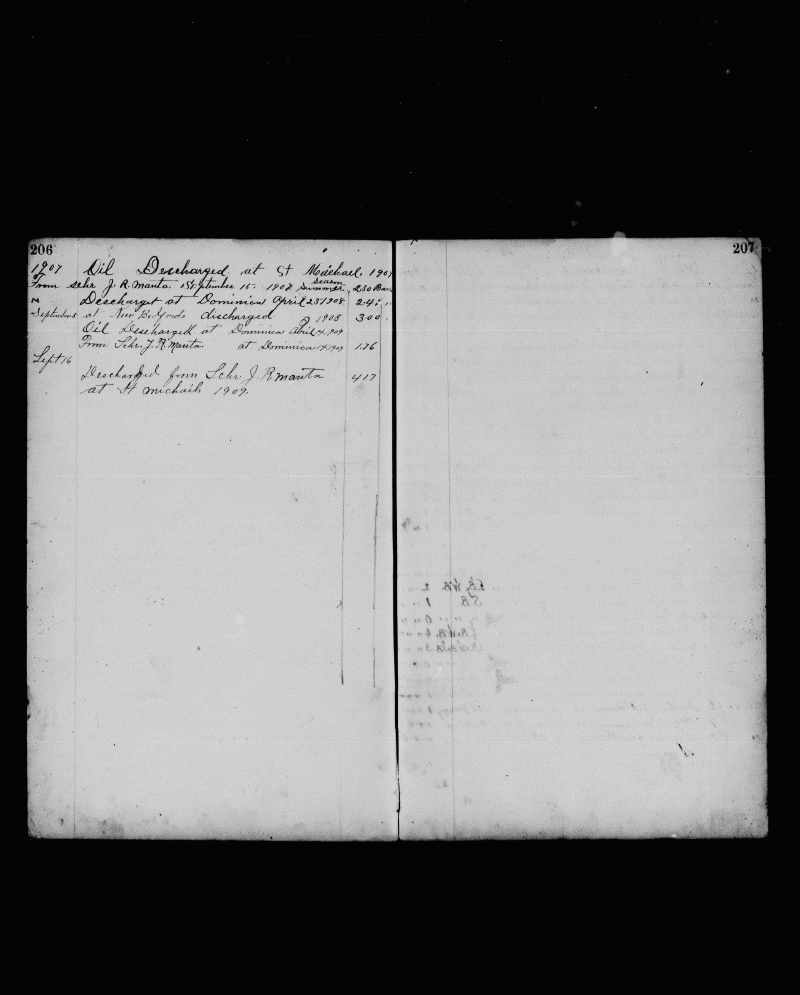 206
1907 Oil Descharged at St Michael, 1907
From Schr J. R. Manta September 15. 1907 Season Summer 230 Bar
" Descharget at Dominica April 23 1908 245 "
September 8 at New Bedford discharged 1908 300 "
Oil Descharged at Dominica April 4, 1909
From Schr. J. R. Manta. at Dominica 1909 176
Sept 16
Descharged from Schr J. R manta 417
at St michails 1909.
207